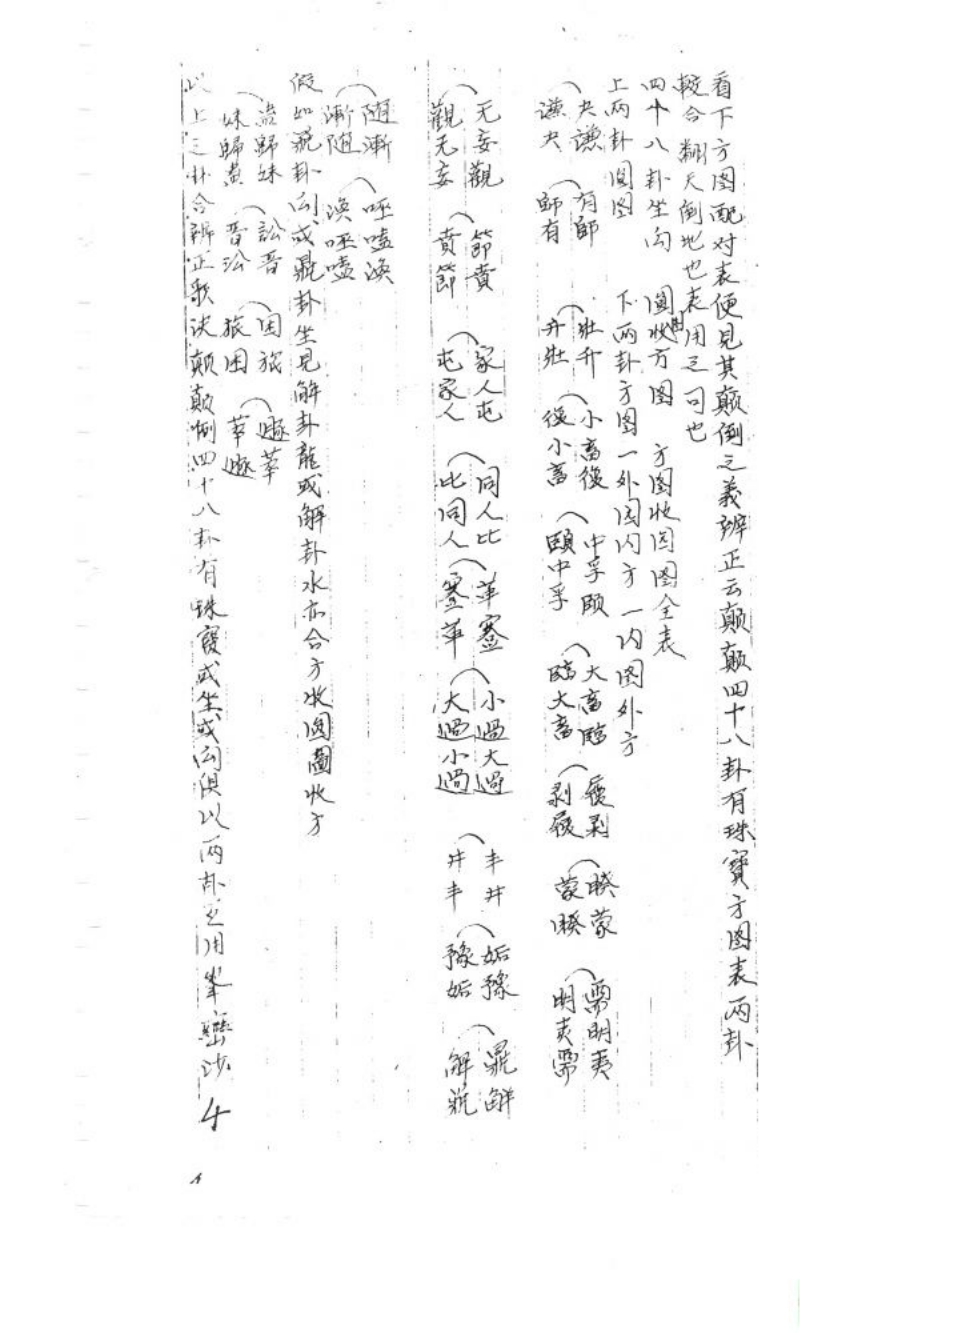 看下方图配对表便見其颠倒之義辨正云颠颠四十八卦有珠寶方图表两卦
較合翻天倒地也表用之可也
四十八卦坐向 圓图收方图 方图收圆图全表
上两卦圓图 下两卦方图一外圆内方一内圆外方
夬謙 有師 壮升 小畜復 中孚頤 大畜臨 履剥 睽蒙 需明夷
謙夬 師有 升壮 復小畜 頤中孚 臨大畜 剥履 蒙睽 明夷需
无妄觀 節賁 家人屯 同人比 革蹇 小過大過 丰井 姤豫 鼎解
觀无妄 賁節 屯家人 比同人 蹇革 大過小過 井丰 豫姤 解鼎
随漸 噬嗑渙
漸随 渙噬嗑
假如鼎卦向或鼎卦坐見解卦龍或解卦水亦合方收圓圖收方
蠱歸妹 訟晋 困旅 遯萃
妹歸蠱 晋訟 旅困 萃遯
以上之卦合辨正歌决颠颠倒四十八卦有珠寶或坐或向俱以两卦互用峯巒沙
4